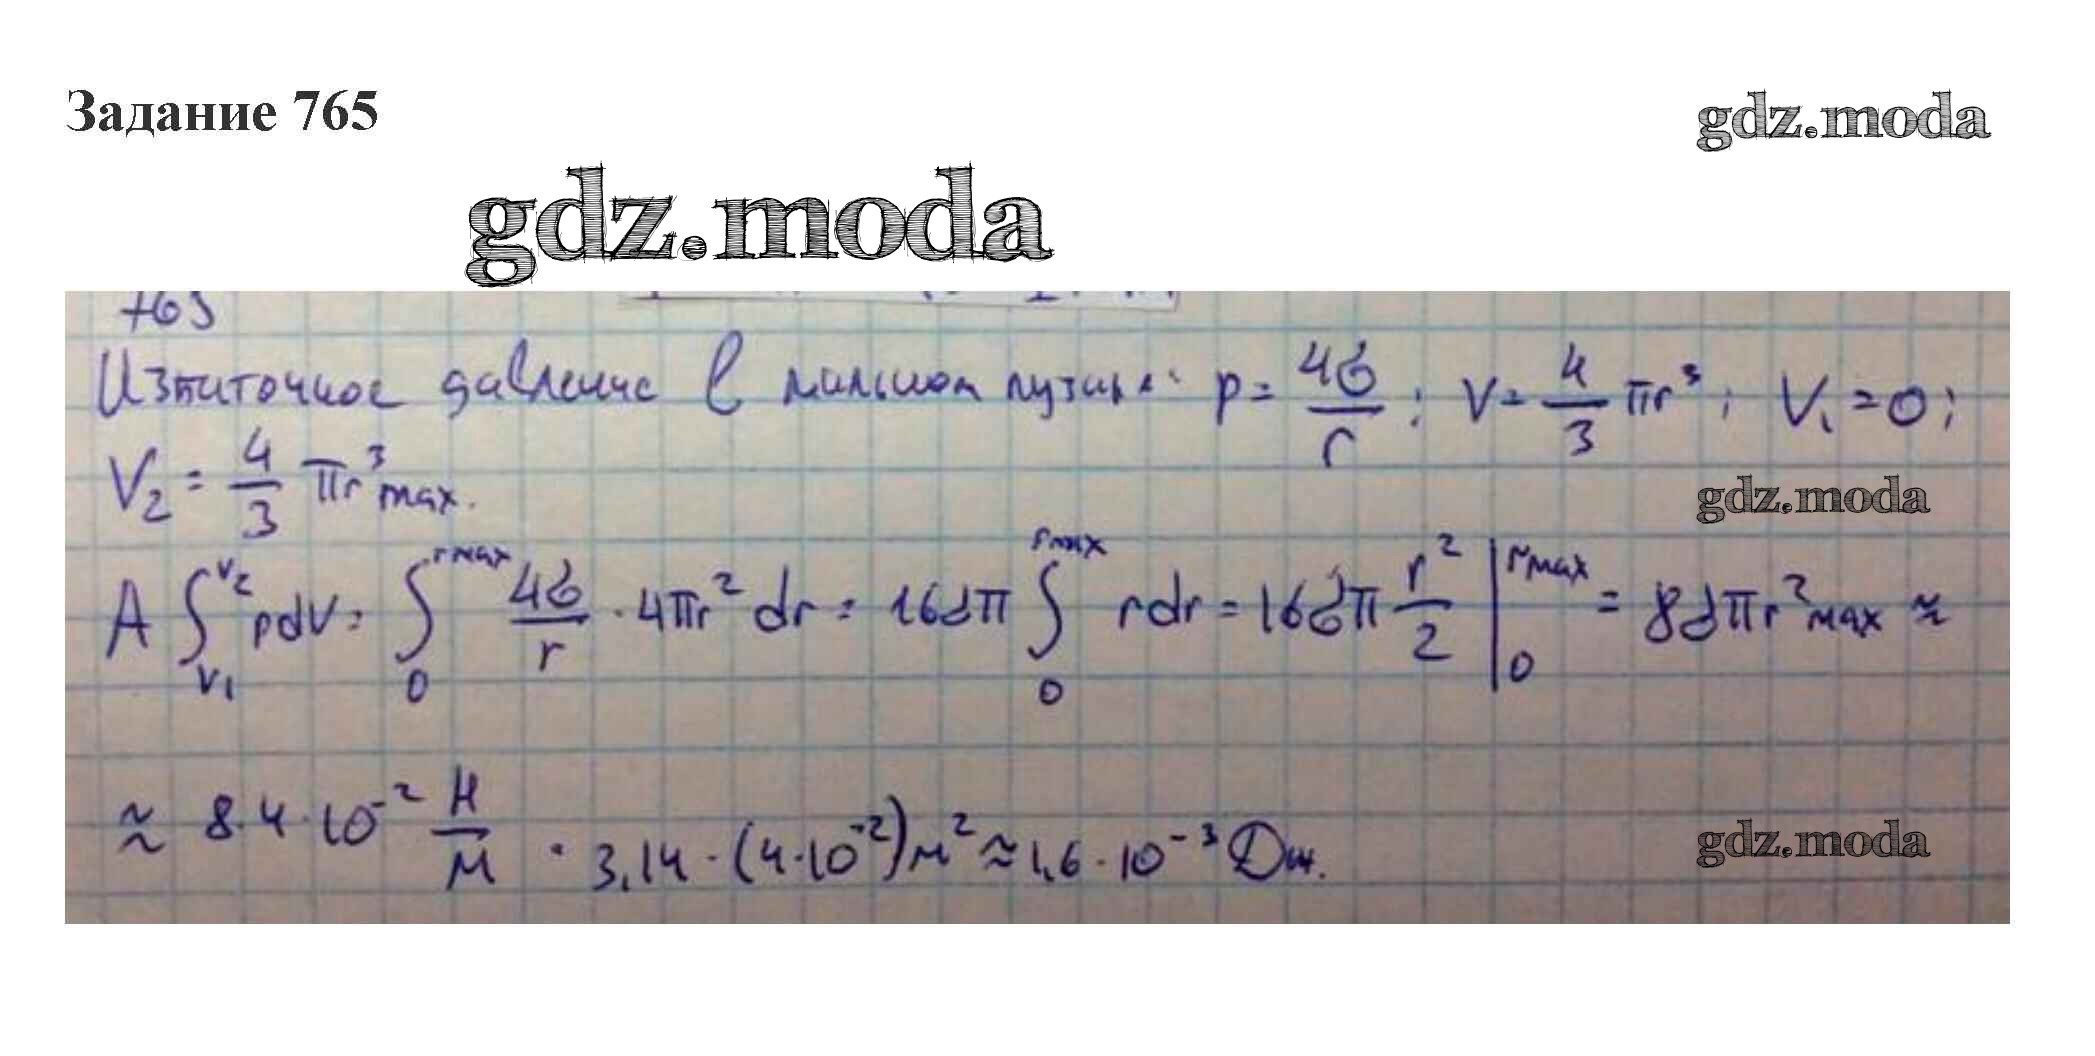 Задание 765
gdz.moda
gdz.moda
765
Избыточное давление в мыльном пузыре: p = 4σ/r ; V = 4/3 πr³ ; V₁ = 0 ;
V₂ = 4/3 πr³max.
gdz.moda
A ∫V₁V₂ pdV = ∫0rmax 4σ/r · 4πr² dr = 16σπ ∫0rmax rdr = 16σπ r²/2 |0rmax = 8σπr²max ≈
≈ 8·4·10⁻² Н/м · 3,14 · (4·10⁻²)м² ≈ 1,6·10⁻³ Дж.
gdz.moda